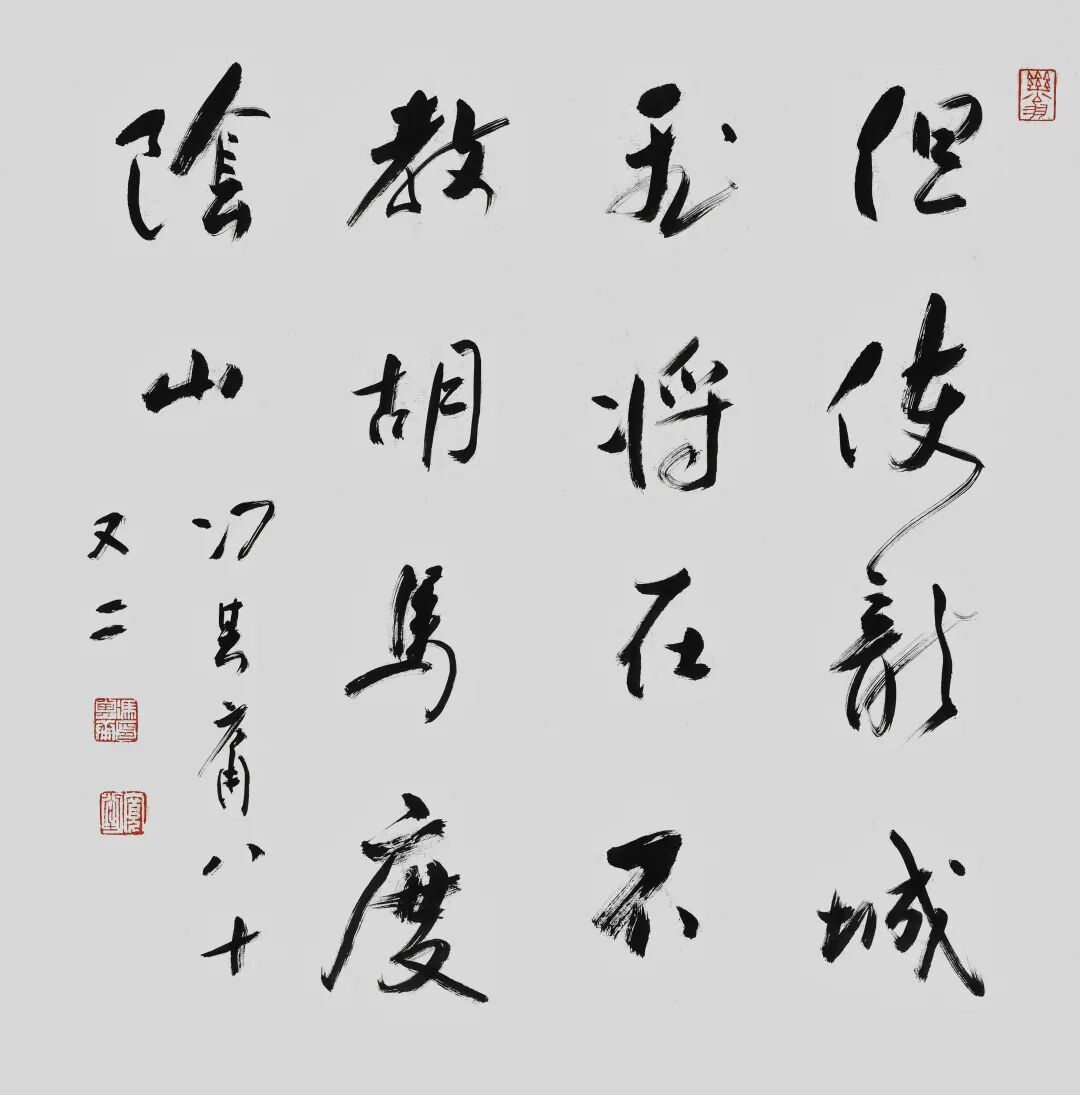 但使龍城
飛將在不
教胡馬度
陰山
馮其庸八十
又二